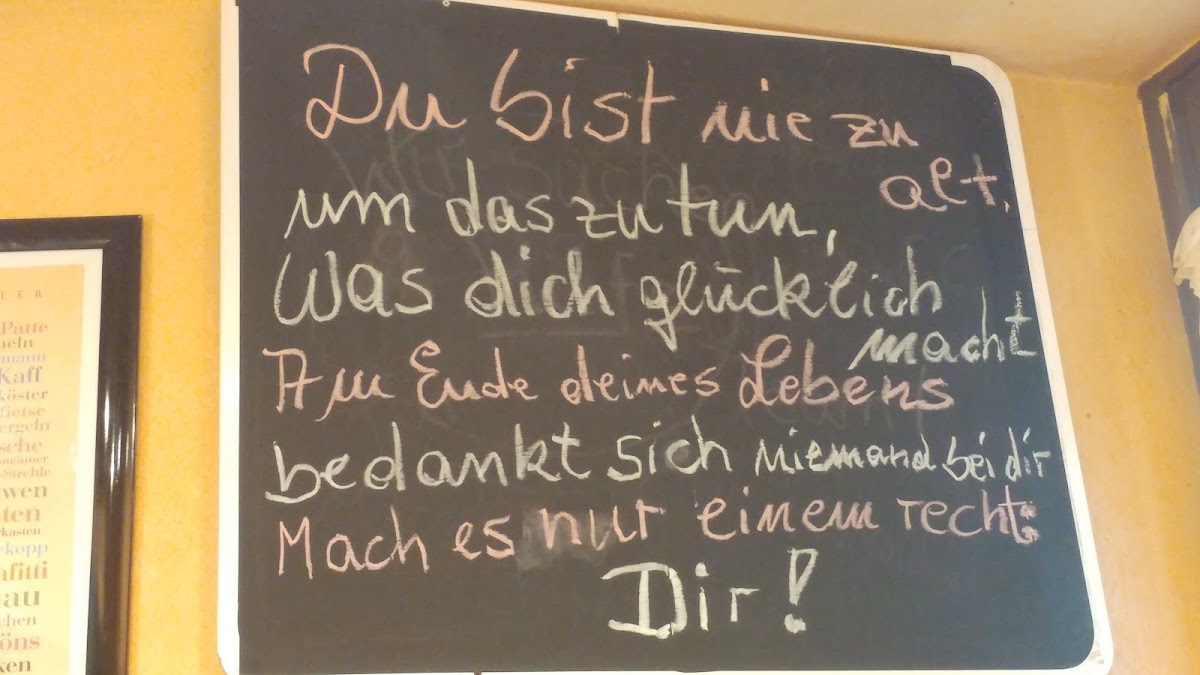 Du bist nie zu
alt,
um das zu tun,
Was dich glücklich
macht
Am Ende deines Lebens
bedankt sich niemand bei dir
Mach es nur einem recht:
Dir!
TER
Patte
mann
Kaff
köster
fietse
ergeln
sche
-Strehle
uwen
ten
kasten
kopp
afitti
au
chen
öns
ken